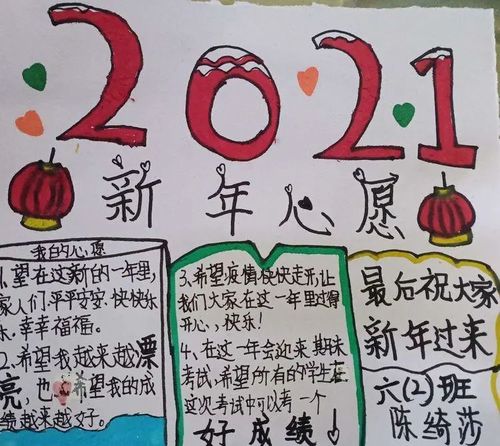 2021
新年心愿
我的心愿
1.望在这新的一年里,
家人们平平安安.快快乐
乐.幸幸福福。
2.希望我越来越漂
亮,也希望我的成
绩越来越好。
3.希望疫情快快走开,让
我们大家在这一年里过得
开心,,快乐!
4、在这一年会迎来期末
考试,希望所有的学生在
这次考试中可以考一个
好成绩!
最后祝大家
新年过来
六(2)班
陈绮莎